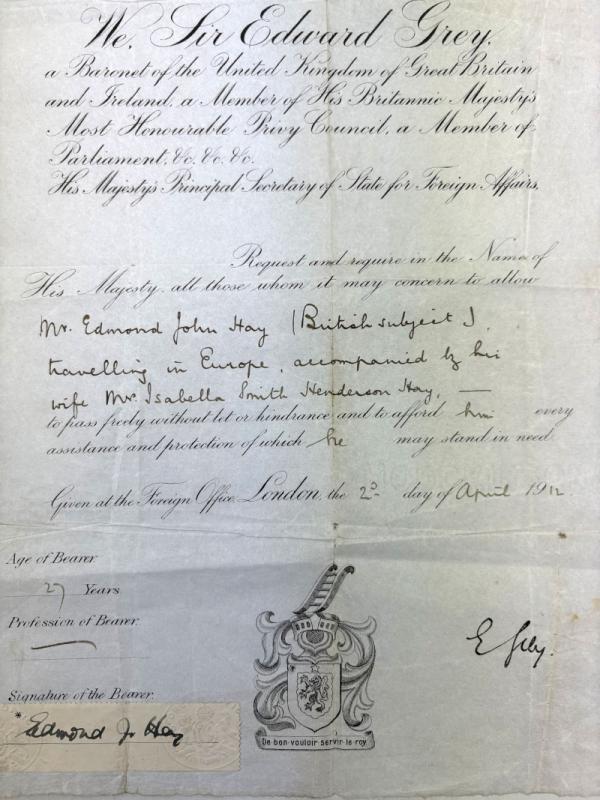 We, Sir Edward Grey,
a Baronet of the United Kingdom of Great Britain
and Ireland, a Member of His Britannic Majesty's
Most Honourable Privy Council, a Member of
Parliament, &c. &c. &c.
His Majesty's Principal Secretary of State for Foreign Affairs,
Request and require in the Name of
His Majesty, all those whom it may concern to allow
Mr. Edmond John Hay (British subject),
travelling in Europe, accompanied by his
wife Mrs. Isabella Smith Henderson Hay, —
to pass freely without let or hindrance and to afford him every
assistance and protection of which he may stand in need.
Given at the Foreign Office, London, the 2d day of April 1912
Age of Bearer.
27 Years
Profession of Bearer.
Signature of the Bearer.
* Edmond J. Hay
E Grey.
De bon vouloir servir le roy